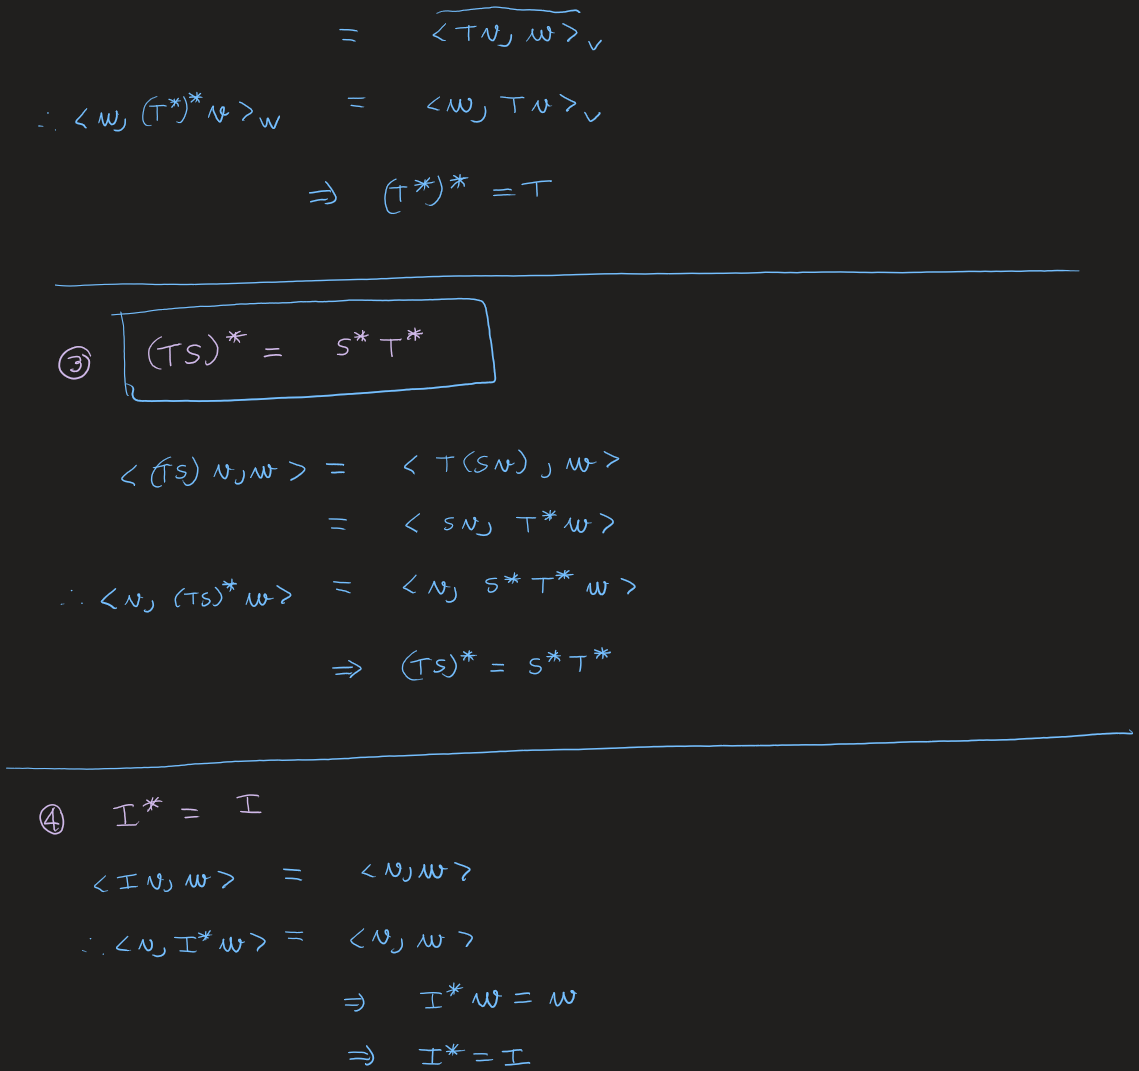 = \overline{<Tv, w>}_v
∴ <w, (T*)* v>_W = <w, Tv>_v
⇒ (T*)* = T
③ (TS)* = S* T*
<(TS) v, w> = <T(Sv), w>
= <Sv, T* w>
∴ <v, (TS)* w> = <v, S* T* w>
⇒ (TS)* = S* T*
④ I* = I
<Iv, w> = <v, w>
∴ <v, I* w> = <v, w>
⇒ I* w = w
⇒ I* = I